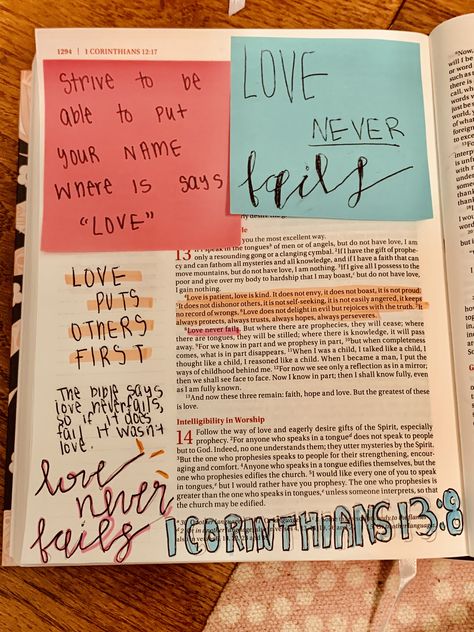 1294 | 1 CORINTHIANS 12:17
Strive to be
able to put
your NAME
where is says
"LOVE"
LOVE
NEVER
fails
LOVE
PUTS
OTHERS
FIRST
The bible says
love never fails,
so if it does
fail it wasn't
love
love
never
fails
you the most excellent way.
13 If I speak in the tongues of men or of angels, but do not have love, I am
only a resounding gong or a clanging cymbal. 2If I have the gift of prophe-
cy and can fathom all mysteries and all knowledge, and if I have a faith that can
move mountains, but do not have love, I am nothing. 3If I give all I possess to the
poor and give over my body to hardship that I may boast, but do not have love,
I gain nothing.
4Love is patient, love is kind. It does not envy, it does not boast, it is not proud.
5It does not dishonor others, it is not self-seeking, it is not easily angered, it keeps
no record of wrongs. 6Love does not delight in evil but rejoices with the truth. 7It
always protects, always trusts, always hopes, always perseveres.
8Love never fails. But where there are prophecies, they will cease; where
there are tongues, they will be stilled; where there is knowledge, it will pass
away. 9For we know in part and we prophesy in part, 10but when completeness
comes, what is in part disappears. 11When I was a child, I talked like a child, I
thought like a child, I reasoned like a child. When I became a man, I put the
ways of childhood behind me. 12For now we see only a reflection as in a mirror;
then we shall see face to face. Now I know in part; then I shall know fully, even
as I am fully known.
13And now these three remain: faith, hope and love. But the greatest of these
is love.
Intelligibility in Worship
14 Follow the way of love and eagerly desire gifts of the Spirit, especially
prophecy. 2For anyone who speaks in a tongue does not speak to people
but to God. Indeed, no one understands them; they utter mysteries by the Spirit.
3But the one who prophesies speaks to people for their strengthening, encour-
aging and comfort. 4Anyone who speaks in a tongue edifies themselves, but the
one who prophesies edifies the church. 5I would like every one of you to speak
in tongues, but I would rather have you prophesy. The one who prophesies is
greater than the one who speaks in tongues, unless someone interprets, so that
the church may be edified.
1 CORINTHIANS 13:8